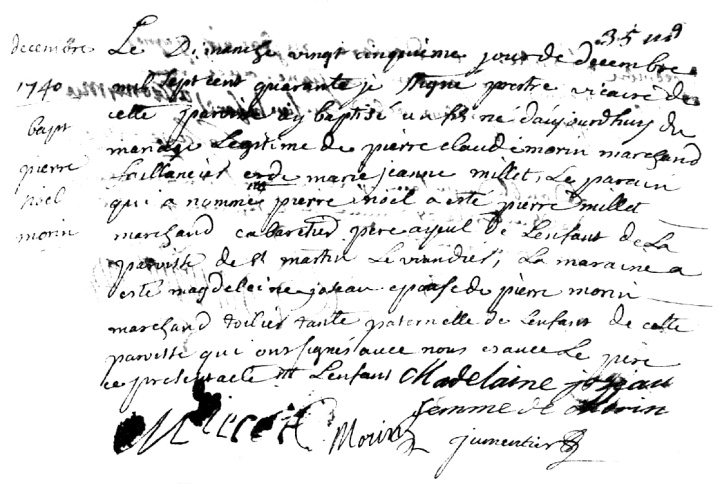 decembre
1740
bapt
pierre
noel
morin
35 me
Le Dimanche vingt cinquieme jour de decembre
mil sept cent quarante je signé prestre vicaire de
cette paroisse ay baptisé un fils né daujourdhuy du
mariage Legitime de pierre claude morin marchand
et de marie jeanne millet, Le parain
qui a nommé pierre noël a esté pierre millet
marchand cabaretier pere ayeul de Lenfant de La
paroisse de st martin Le viandier, La maraine a
esté magdeleine joseau epouse de pierre morin
marchand toilier tante paternelle de Lenfant de cette
paroisse qui ont signés avec nous et avec Le pere
ce present acte Lenfant Madelaine joseau
femme de Morin
Millet Morin jumentier